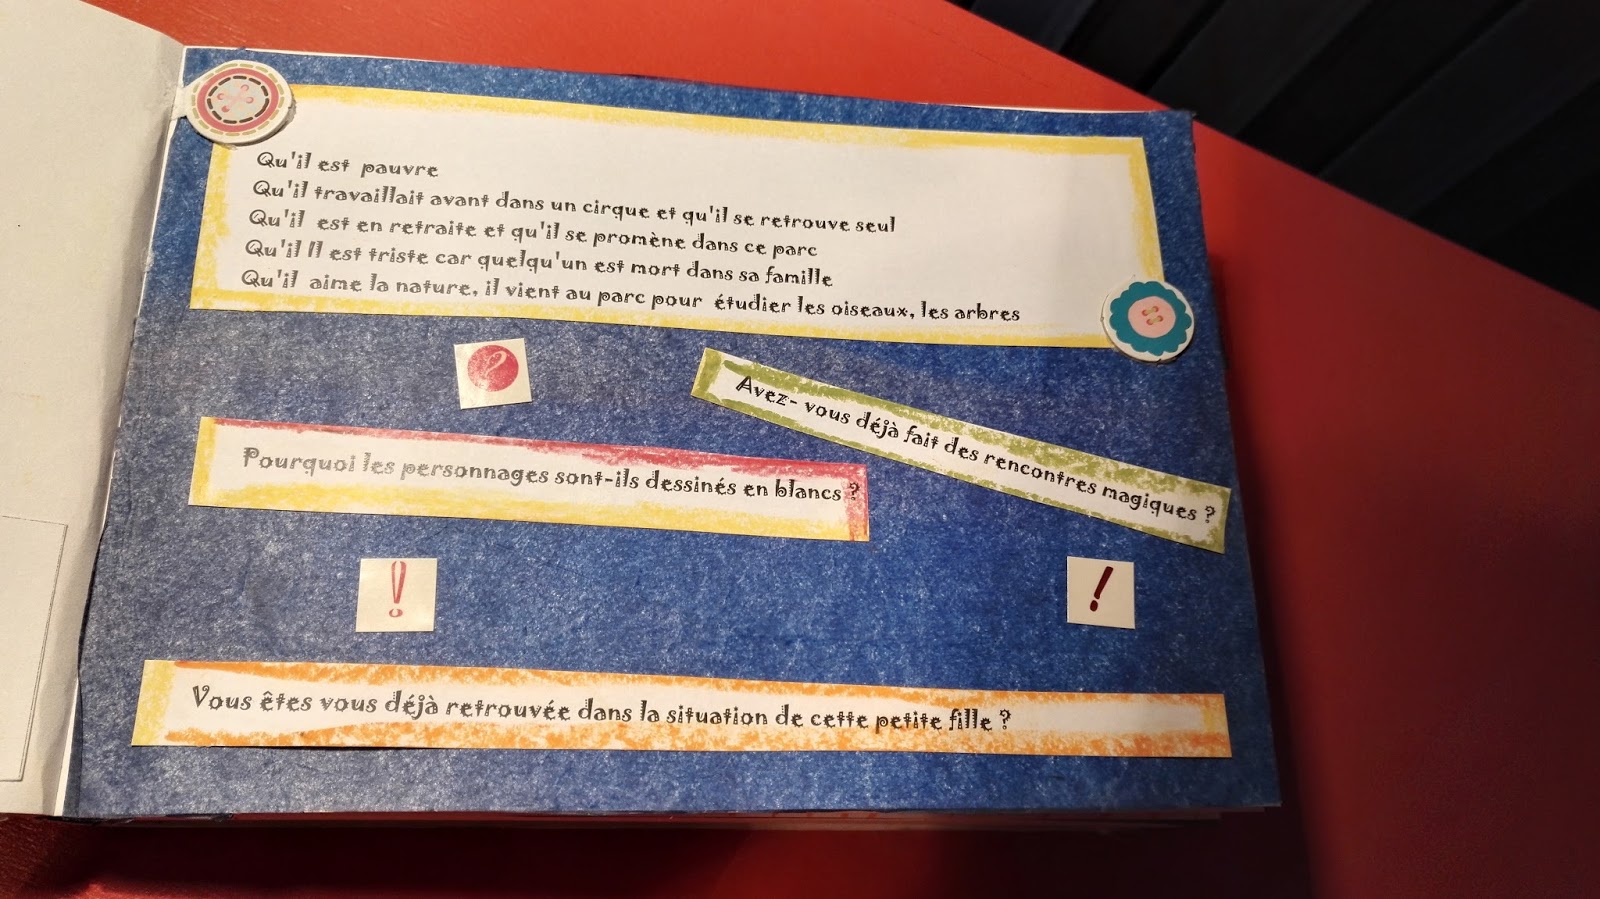 Qu'il est pauvre
Qu'il travaillait avant dans un cirque et qu'il se retrouve seul
Qu'il est en retraite et qu'il se promène dans ce parc
Qu'il Il est triste car quelqu'un est mort dans sa famille
Qu'il aime la nature, il vient au parc pour étudier les oiseaux, les arbres
?
Avez- vous déjà fait des rencontres magiques ?
Pourquoi les personnages sont-ils dessinés en blancs ?
!
!
Vous êtes vous déjà retrouvée dans la situation de cette petite fille ?